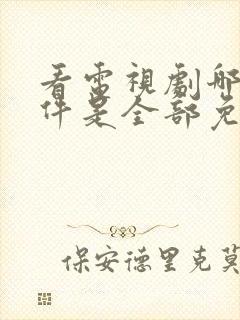 看電視劇哪
件是全部免
保安德里克莫